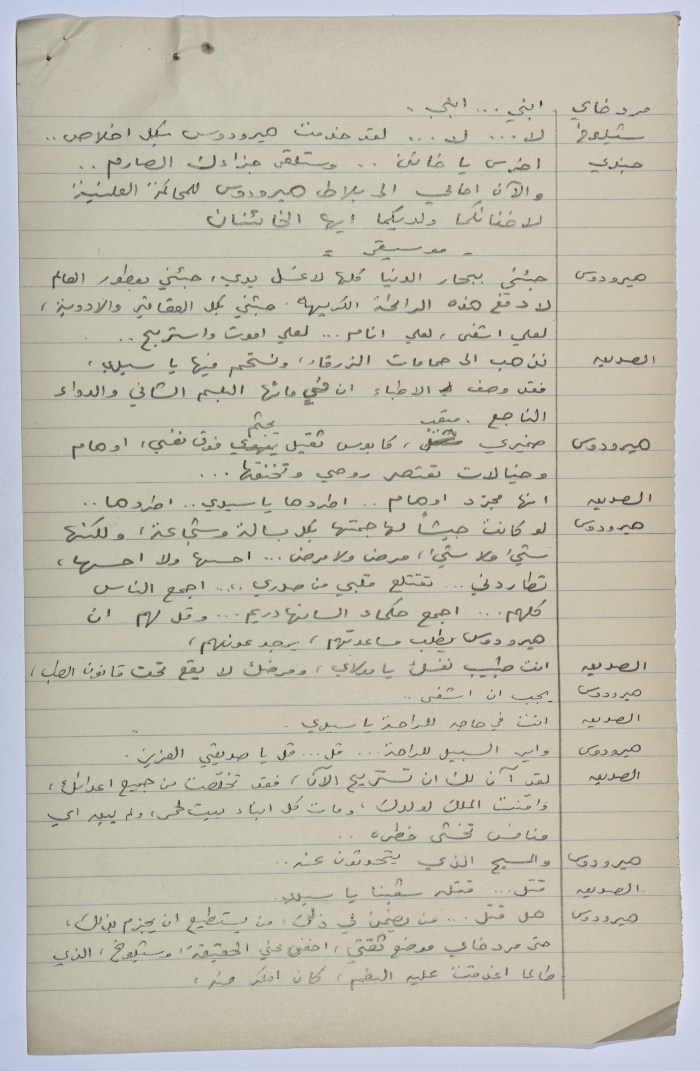 مردخاي . ابني ... ابني .
شيلوخ لا ... لا ... لقد خدمت هيرودوس بكل اخلاص ..
جندي اخرس يا خائن .. وستلقى جزاءك الصارم ..
والآن امامي الى بلاط هيرودوس للمحاكمة العلنية
لاخفائكما ولديكما ايها الخائنان
- موسيقى -
هيرودوس جيئني ببحار الدنيا كلها لاغسل يدي، جيئني بعطور العالم
لادفع هذه الرائحة الكريهة، جيئني بكل العقاقير والادوية،
لعلي اشفى، لعلي انام ... لعلي اموت واستريح ..
الصديق نذهب الى حمامات الزرقاء، ونستحم فيها يا سيدي،
فقد وصف الاطباء ان في مائها البلسم الشافي والدواء
الناجع .
هيرودوس ضميري متعب، كابوس ثقيل يجثم فوق نفسي، اوهام
وخيالات تعتصر روحي وتخنقها ...
الصديق انها مجرد اوهام .. اطردها يا سيدي .. اطردها ..
هيرودوس لو كانت جيشاً لهاجمتها بكل بسالة وشجاعة، ولكنها
شيء ولا شيء، مرض ولا مرض ... احسها ولا احسها،
تطاردني ... تقتلع قلبي من صدري ... اجمع الناس
كلهم ... اجمع حكماء السانهادريم ... وقل لهم ان
هيرودوس يطلب مساعدتهم، يرجو عونهم،
الصديق انت طبيب نفسك يا مولاي، ومرضك لا يقع تحت قانون الطب،
هيرودوس يجب ان اشفى ..
الصديق انت في حاجه للراحة يا سيدي .
هيرودوس واين السبيل للراحة ... قل ... قل يا صديقي العزيز .
الصديق لقد آن لك ان تستريح الآن، فقد تخلصت من جميع اعدائك،
وامنت الملك لولدك، ومات كل ابناء بيت لحم، ولم يبق اي
منافس تخشى خطره ..
هيرودوس والمسيح الذي يتحدثون عنه ..
الصديق قتل ... قتله شعبنا يا سيدي
هيرودوس هل قتل .... من يضمن لي ذلك، من يستطيع ان يجزم بذلك،
حتى مردخاي موضع ثقتي، اخفى عني الحقيقة، وشيلوخ، الذي
طالما اغدقت عليه النعم، كان امكر منه،